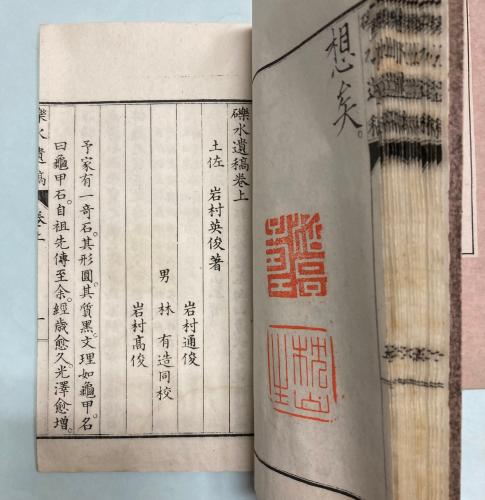 想矣。
礫水遺稿卷上
土佐 岩村英俊著
岩村通俊
男 林 有造同校
岩村高俊
予家有一奇石。其形圓。其質黑。文理如龜甲。名
曰龜甲石。自祖先傳至余。經歲愈久。光澤愈增。
礫水遺稿